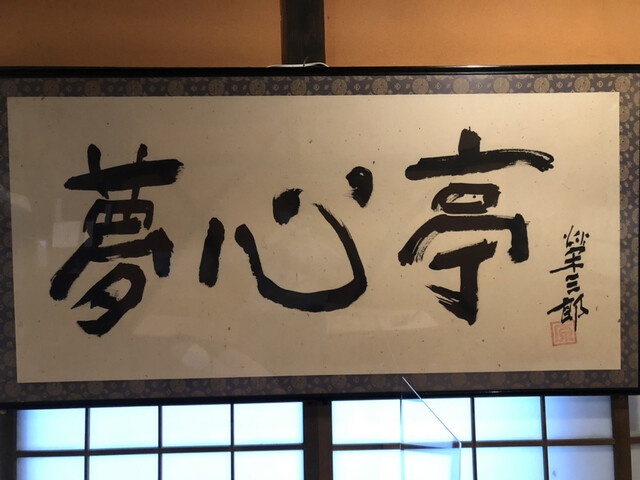 夢心亭
榮三郎